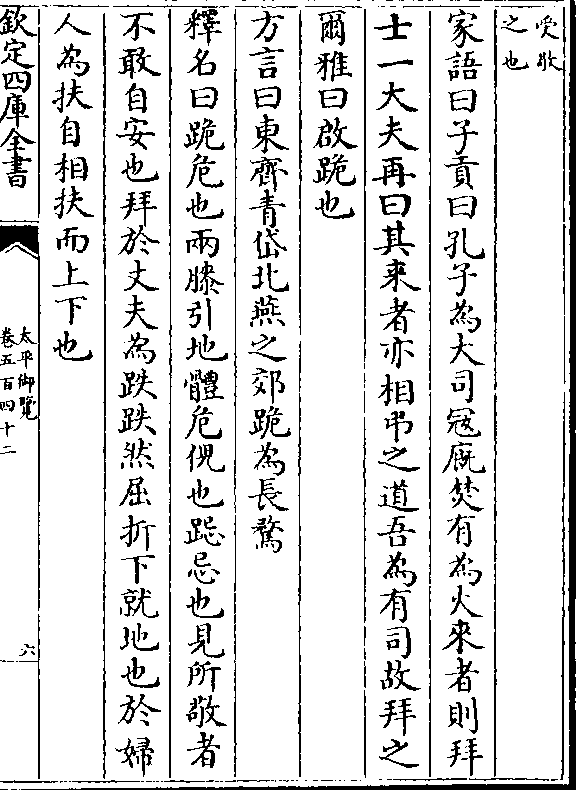 受敬
之也
家語曰子貢曰孔子為大司冦廐焚有為火來者則拜
士一大夫再曰其来者亦相弔之道吾為有司故拜之
爾雅曰啟跪也
方言曰東齊青岱北燕之郊跪為長鶩
釋名曰跪危也兩膝引地體危倪也跽忌也見所敬者
不敢自安也拜於丈夫為跌跌然屈折下就地也於婦
人為扶自相扶而上下也
欽定四庫全書
太平御覽
卷五百四十二
六